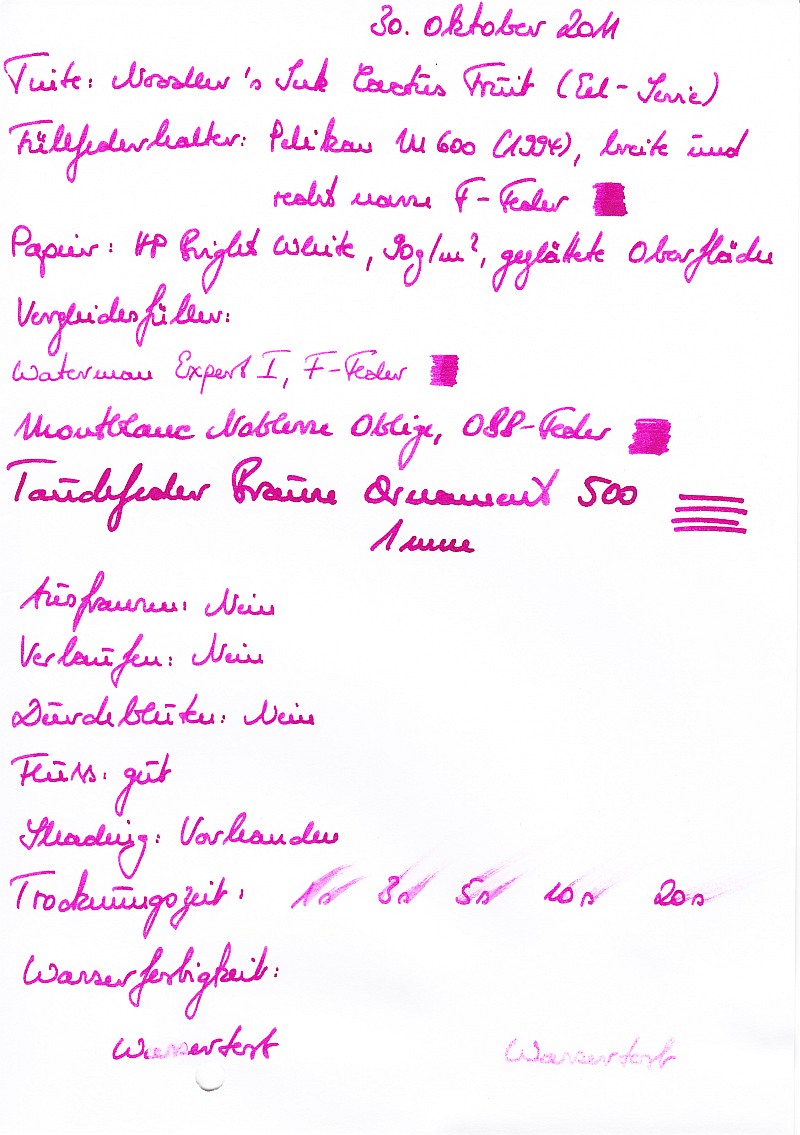 30. Oktober 2011
Tinte: Noodler's Ink Cactus Fruit (Eel-Serie)
Füllfederhalter: Pelikan M 600 (1994), breite und
recht nasse F-Feder
Papier: HP Bright White, 90g/m², geglättete Oberfläche
Vergleichsfüller:
Waterman Expert I, F-Feder
Montblanc Noblesse Oblige, OBB-Feder
Tauchfeder Brause Ornament 500
1mm
Ausfransen: Nein
Verlaufen: Nein
Durchbluten: Nein
Fluss: gut
Shading: Vorhanden
Trocknungszeit: 1s 3s 5s 10s 20s
Wasserfestigkeit:
Wassertest Wassertest